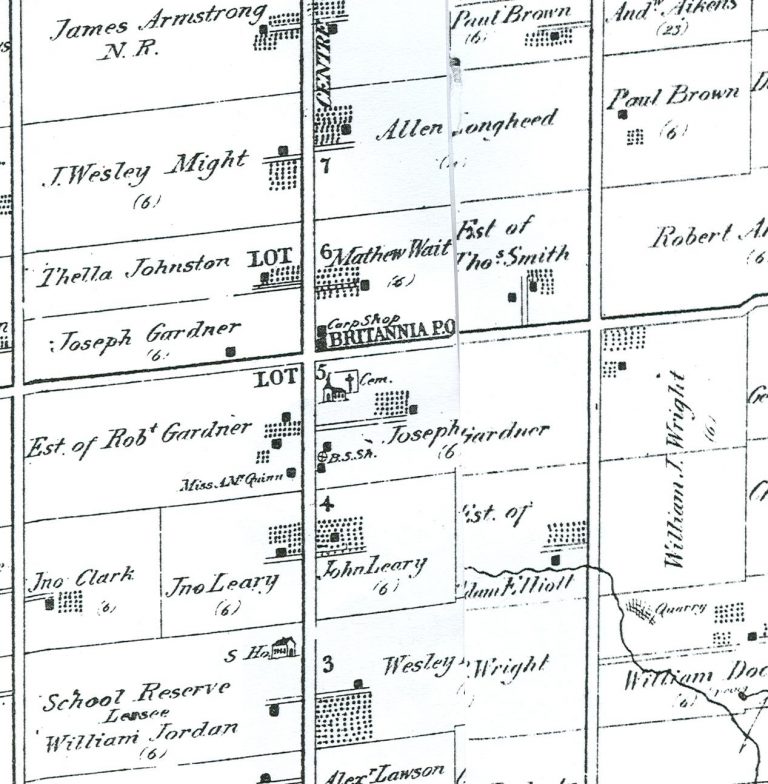 James Armstrong
N. R.
CENTRE
Paul Brown
(6)
And.w Aikens
(23)
Paul Brown
(6)
Allen Longheed
7
J. Wesley Might
(6)
Thella Johnston
LOT 6
Mathew Wait
(6)
Est of
Tho.s Smith
Robert
(6)
Joseph Gardner
(6)
Carp Shop
BRITANNIA P.O
LOT 5
Cem.
Est. of Rob.t Gardner
Miss A. Mc Quinn
B.S.Sh.
Joseph Gardner
(6)
William J. Wright
(6)
4
Jno Clark
(6)
Jno Leary
(6)
John Leary
(6)
Est. of
Adam Elliott
Quarry
S Ho.
3
Wesley Wright
School Reserve
Lessee
William Jordan
(6)
William
(6)
Alex.r Lawson